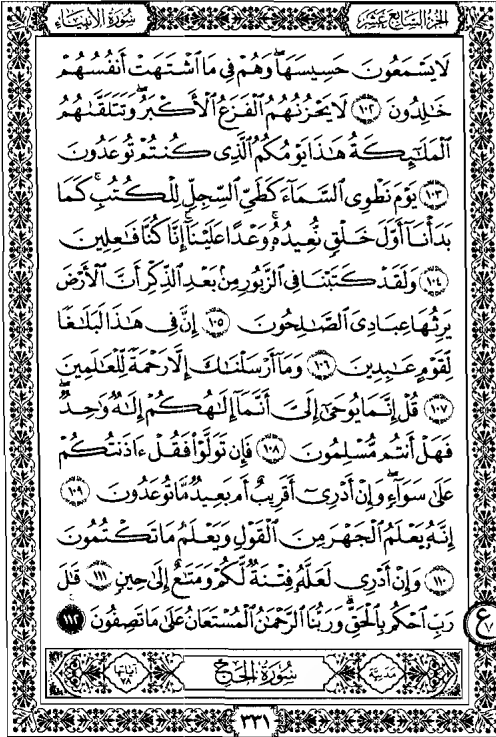 الجزء السابع عشر
سورة الأنبياء
لَا يَسْمَعُونَ حَسِيسَهَا ۖ وَهُمْ فِي مَا ٱشْتَهَتْ أَنفُسُهُمْ
خَٰلِدُونَ ﴿١٠٢﴾ لَا يَحْزُنُهُمُ ٱلْفَزَعُ ٱلْأَكْبَرُ وَتَتَلَقَّىٰهُمُ
ٱلْمَلَٰٓئِكَةُ هَٰذَا يَوْمُكُمُ ٱلَّذِي كُنتُمْ تُوعَدُونَ
﴿١٠٣﴾ يَوْمَ نَطْوِي ٱلسَّمَآءَ كَطَيِّ ٱلسِّجِلِّ لِلْكُتُبِ ۚ كَمَا
بَدَأْنَآ أَوَّلَ خَلْقٍ نُّعِيدُهُۥ ۚ وَعْدًا عَلَيْنَآ ۚ إِنَّا كُنَّا فَٰعِلِينَ
﴿١٠٤﴾ وَلَقَدْ كَتَبْنَا فِي ٱلزَّبُورِ مِنۢ بَعْدِ ٱلذِّكْرِ أَنَّ ٱلْأَرْضَ
يَرِثُهَا عِبَادِيَ ٱلصَّٰلِحُونَ ﴿١٠٥﴾ إِنَّ فِي هَٰذَا لَبَلَٰغًا
لِّقَوْمٍ عَٰبِدِينَ ﴿١٠٦﴾ وَمَآ أَرْسَلْنَٰكَ إِلَّا رَحْمَةً لِّلْعَٰلَمِينَ
﴿١٠٧﴾ قُلْ إِنَّمَا يُوحَىٰٓ إِلَيَّ أَنَّمَآ إِلَٰهُكُمْ إِلَٰهٌ وَٰحِدٌ ۖ
فَهَلْ أَنتُم مُّسْلِمُونَ ﴿١٠٨﴾ فَإِن تَوَلَّوْا۟ فَقُلْ ءَاذَنتُكُمْ
عَلَىٰ سَوَآءٍ ۖ وَإِنْ أَدْرِيٓ أَقَرِيبٌ أَم بَعِيدٌ مَّا تُوعَدُونَ ﴿١٠٩﴾
إِنَّهُۥ يَعْلَمُ ٱلْجَهْرَ مِنَ ٱلْقَوْلِ وَيَعْلَمُ مَا تَكْتُمُونَ
﴿١١٠﴾ وَإِنْ أَدْرِي لَعَلَّهُۥ فِتْنَةٌ لَّكُمْ وَمَتَٰعٌ إِلَىٰ حِينٍ ﴿١١١﴾ قَٰلَ
رَبِّ ٱحْكُم بِٱلْحَقِّ ۗ وَرَبُّنَا ٱلرَّحْمَٰنُ ٱلْمُسْتَعَانُ عَلَىٰ مَا تَصِفُونَ ﴿١١٢﴾
ع
مدنية سُورَةُ الحَجِّ آياتها
٣٣١